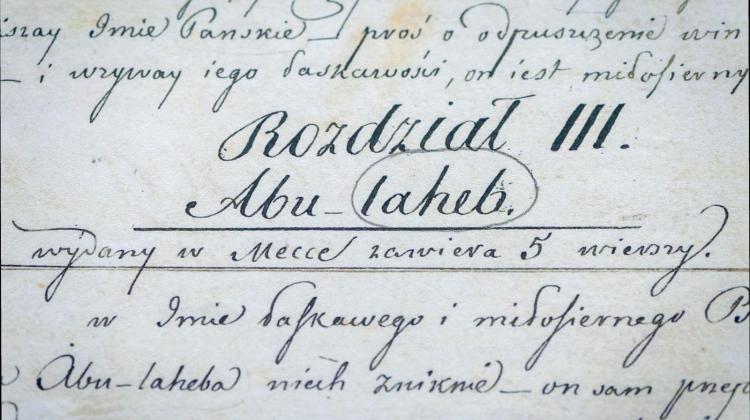 iszay Imie Pańskie — proś o odpuszczenie win
— i wzyway iego łaskawości, on iest miłosierny
Rozdział III.
Abu-laheb.
wydany w Mecce zawiera 5 wierszy.
w Imie łaskawego i miłosiernego B
Abu-laheba niech zniknie — on sam